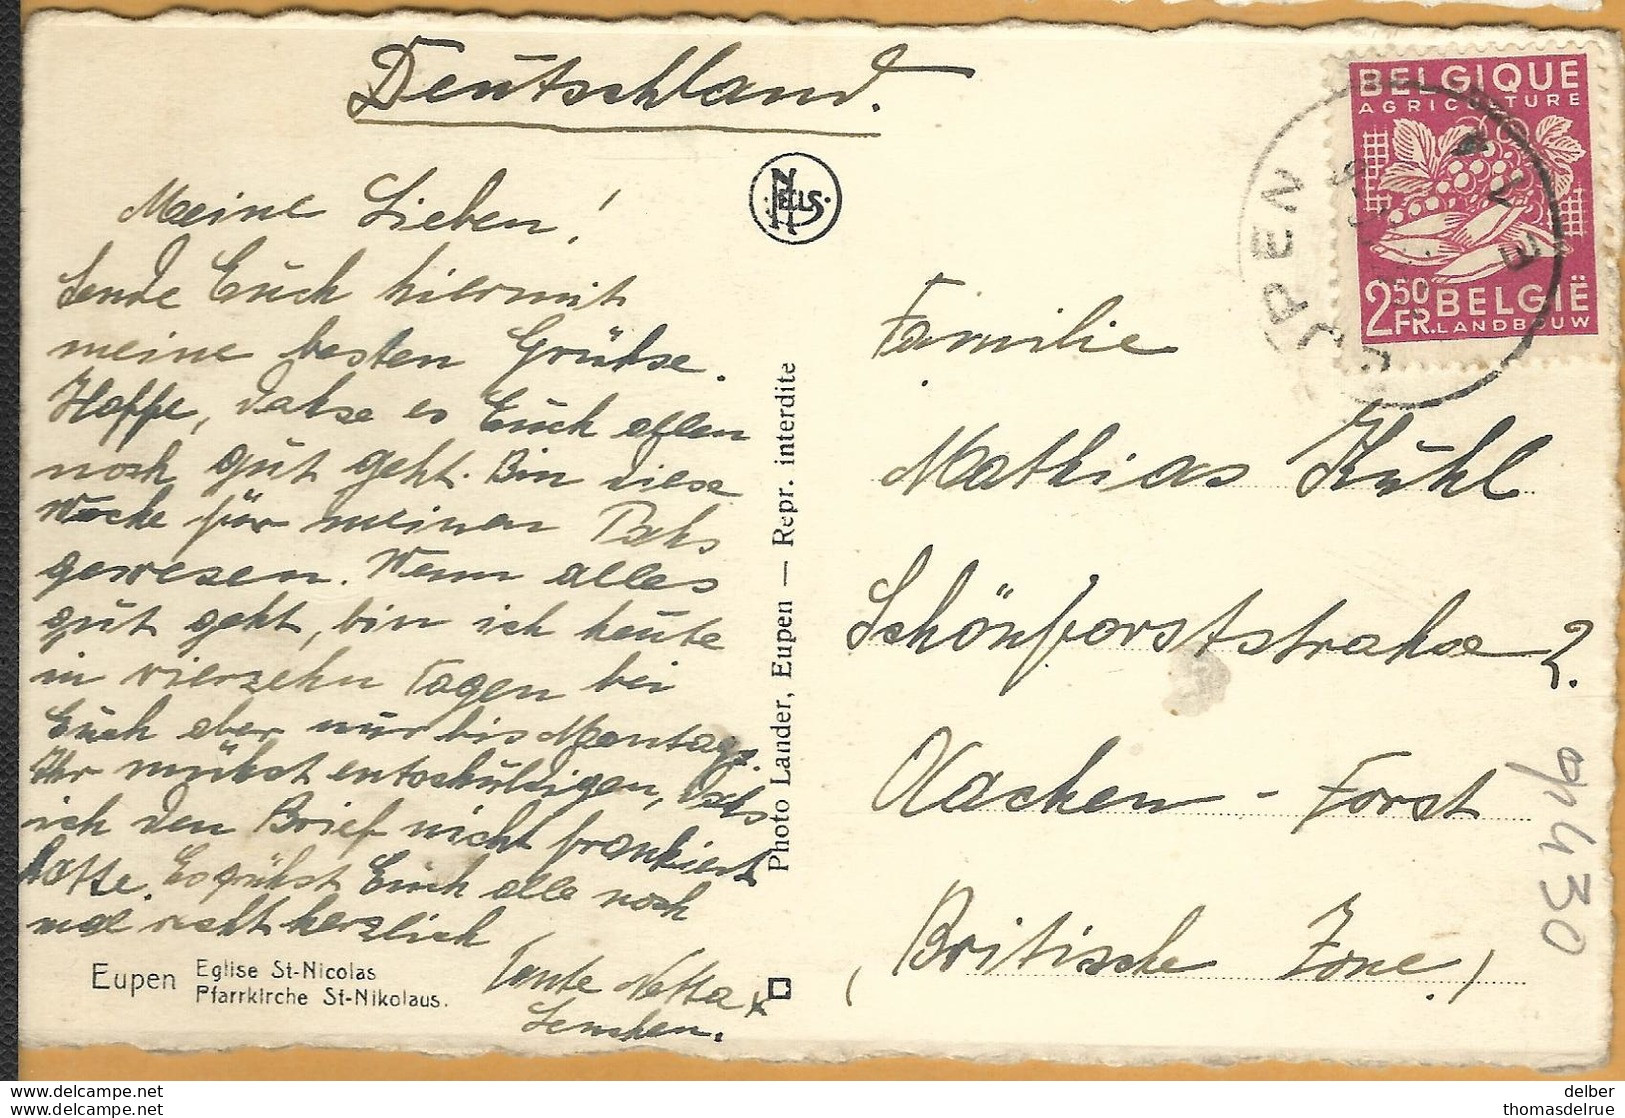 Deutschland.
Meine Lieben!
Sende Euch hiermit
meine besten Grühse.
Hoffe, dahse es Euch allen
noch gut geht. Bin diese
Woche für meinen Pahs
gewesen. Wenn alles
gut geht, bin ich heute
in vierzehn Tagen bei
Euch aber nur bis Montags.
Ihr mühst entschuldigen, dahs
ich den Brief nicht frankiert
hatte. Es grühst Euch alle noch
mal recht herzlich
Tante Netta +
Lenchen.
Eupen
Eglise St-Nicolas
Pfarrkirche St-Nikolaus.
NELS
Photo Lander, Eupen — Repr. interdite
BELGIQUE
AGRICULTURE
2.50 FR. BELGIË
LANDBOUW
EUPEN
Familie
Mathias Kühl
Schönforststrahse 2.
Aachen - Forst
(Britische Zone!)
9430
delber
thomasdelrue